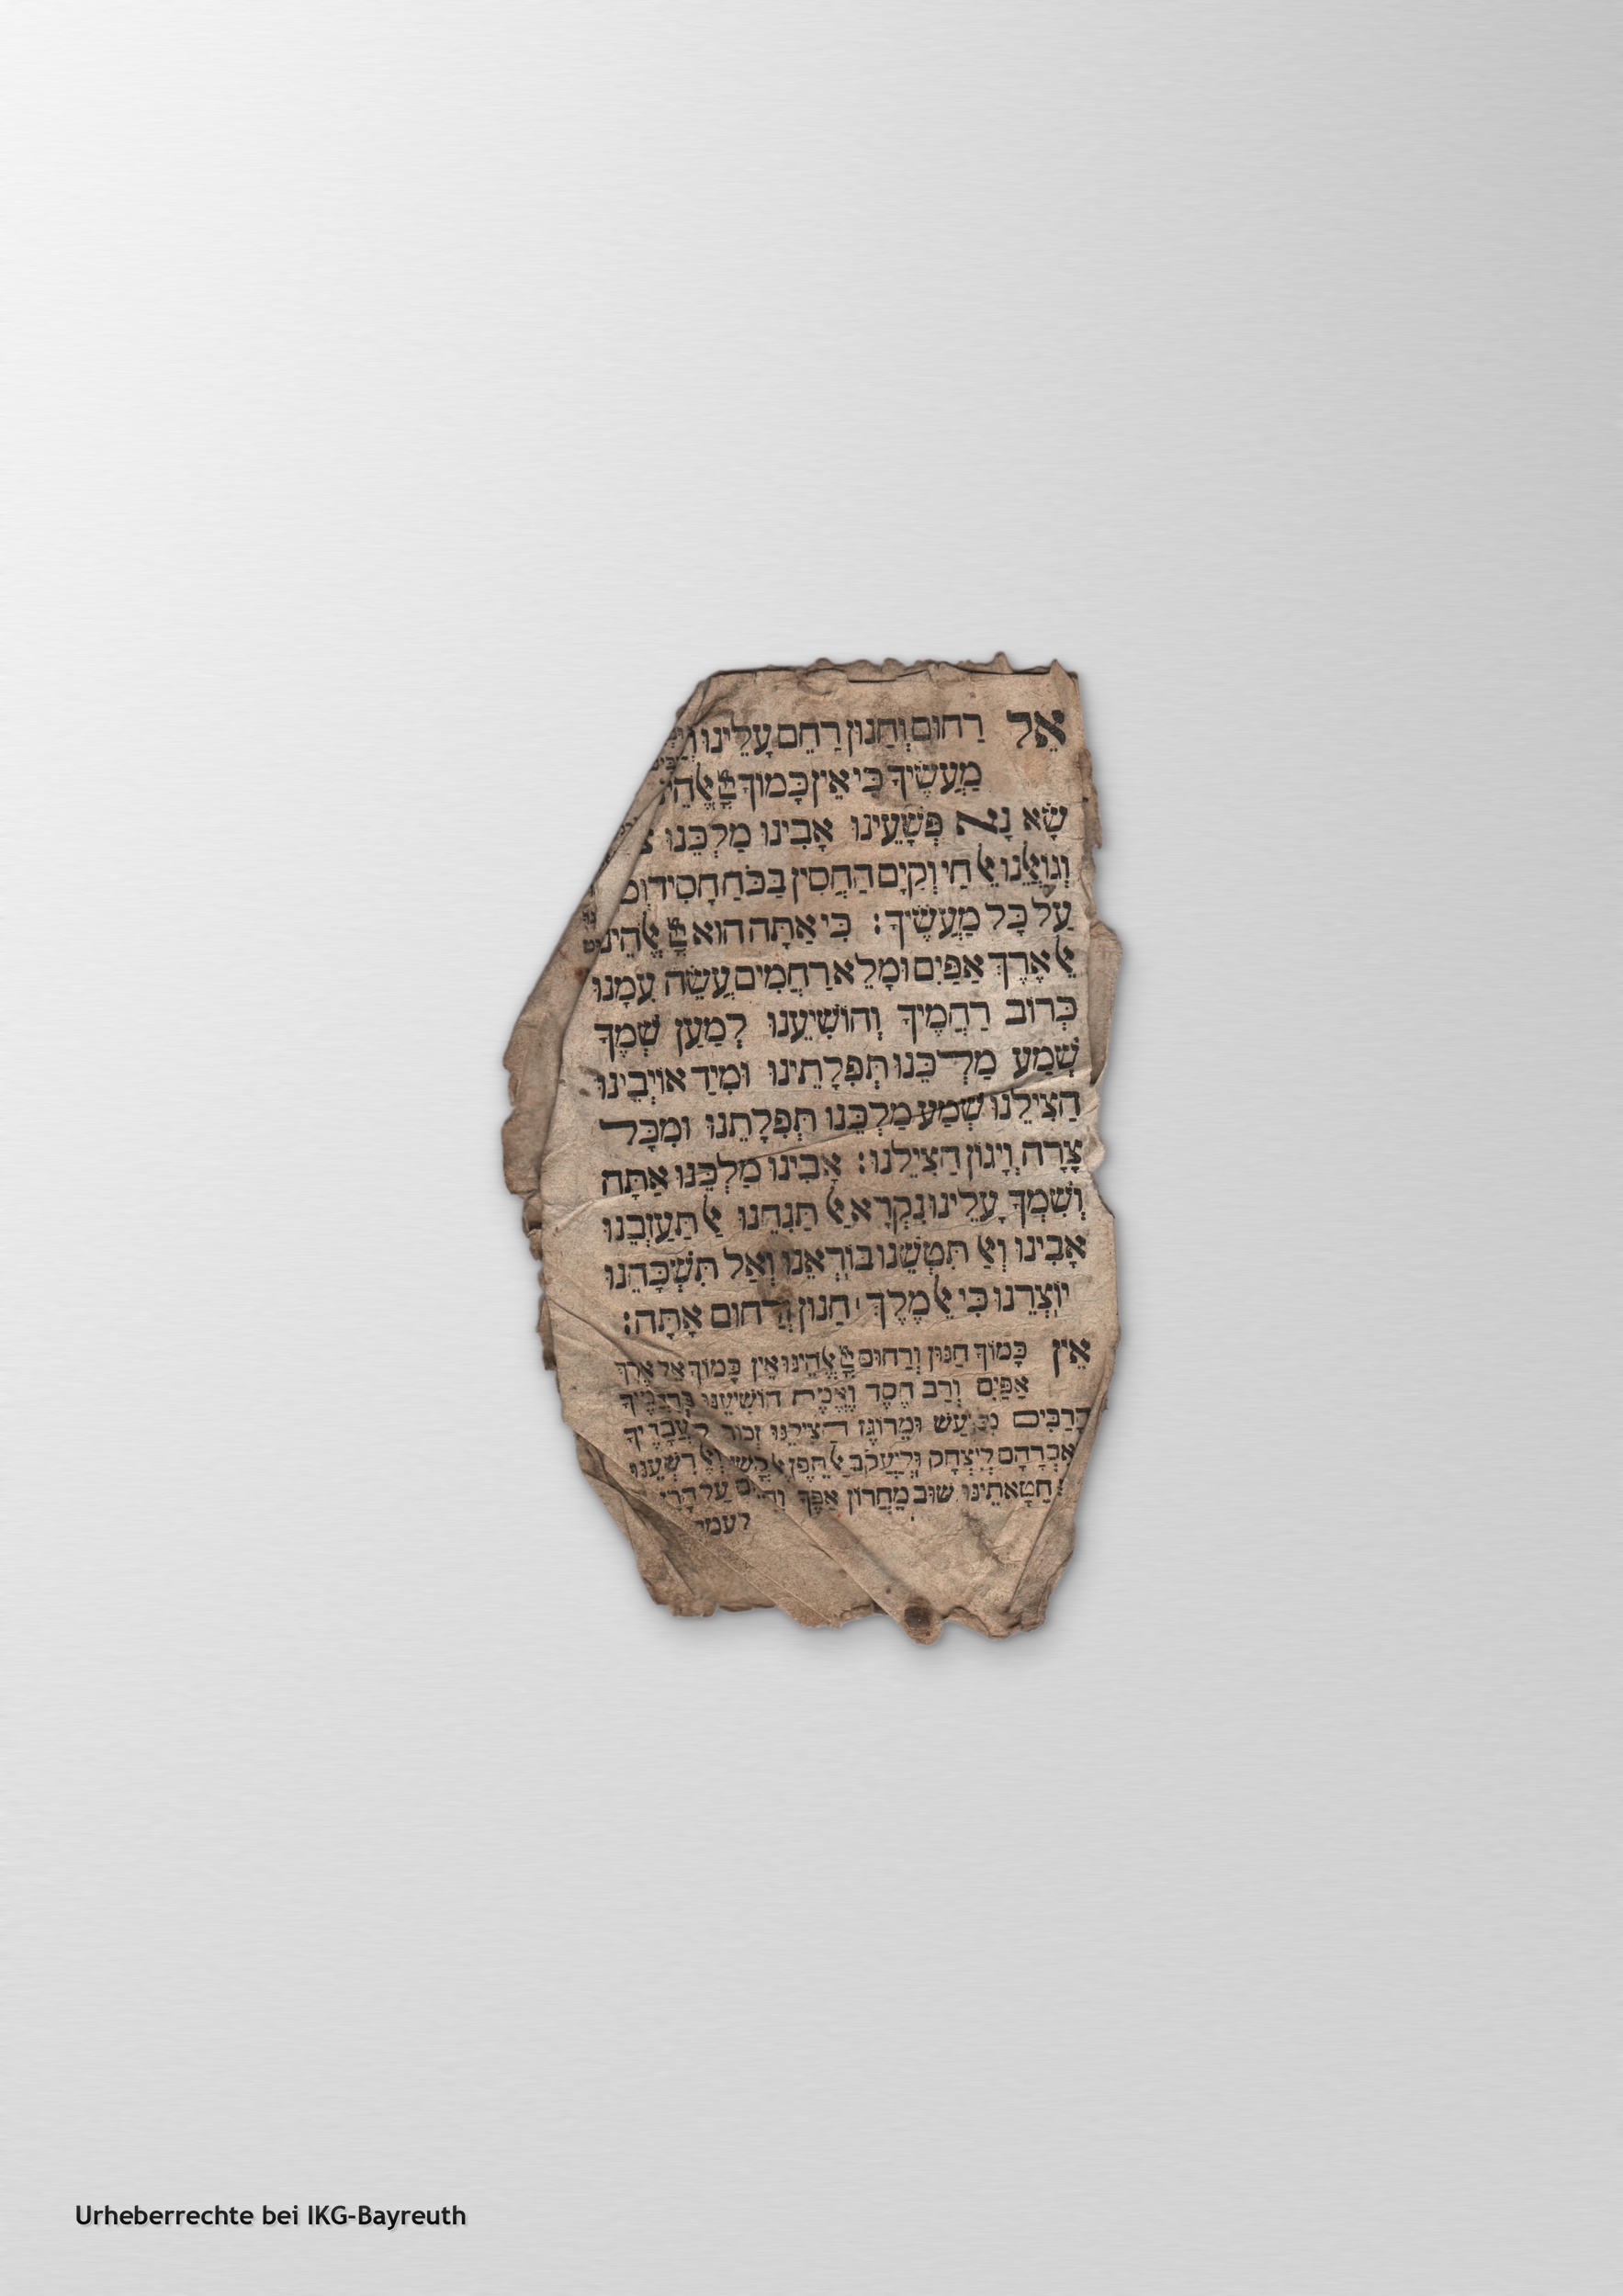 אֵל רַחוּם וְחַנּוּן רַחֵם עָלֵינוּ
מַעֲשֶׂיךָ כִּי אֵין כָּמוֹךָ
שָׂא נָא פְּשָׁעֵינוּ אָבִינוּ מַלְכֵּנוּ
וְגוֹאֲלֵנוּ אֵל חַי וְקַיָּם הַחֲסִין בַּכֹּחַ חָסִיד
עַל כָּל מַעֲשֶׂיךָ: כִּי אַתָּה הוּא
אֵל אֶרֶךְ אַפַּיִם וּמָלֵא רַחֲמִים עֲשֵׂה עִמָּנוּ
כְּרוֹב רַחֲמֶיךָ וְהוֹשִׁיעֵנוּ לְמַעַן שְׁמֶךָ
שְׁמַע מַלְכֵּנוּ תְּפִלָּתֵינוּ וּמִיַּד אוֹיְבֵינוּ
הַצִּילֵנוּ שְׁמַע מַלְכֵּנוּ תְּפִלָּתֵנוּ וּמִכָּל
צָרָה וְיָגוֹן הַצִּילֵנוּ: אָבִינוּ מַלְכֵּנוּ אַתָּה
וְשִׁמְךָ עָלֵינוּ נִקְרָא אַל תַּנִחֵנוּ אַל תַּעַזְבֵנוּ
אָבִינוּ וְאַל תִּטְּשֵׁנוּ בּוֹרְאֵנוּ וְאַל תִּשְׁכָּחֵנוּ
יוֹצְרֵנוּ כִּי אֵל מֶלֶךְ חַנּוּן וְרַחוּם אָתָּה:
אֵין כָּמוֹךָ חַנּוּן וְרַחוּם יְיָ אֱלֹהֵינוּ אֵין כָּמוֹךָ אֵל אֶרֶךְ
אַפַּיִם וְרַב חֶסֶד וֶאֱמֶת הוֹשִׁיעֵנוּ בְּרַחֲמֶיךָ
הָרַבִּים וּמֵרוֹגֶז הַצִּילֵנוּ זְכוֹר לַעֲבָדֶיךָ
אַבְרָהָם לְיִצְחָק וּלְיַעֲקֹב אַל תֵּפֶן אֶל
חַטָּאתֵינוּ שׁוּב מֵחֲרוֹן אַפֶּךָ עַל
לְעַמֶּ
Urheberrechte bei IKG-Bayreuth